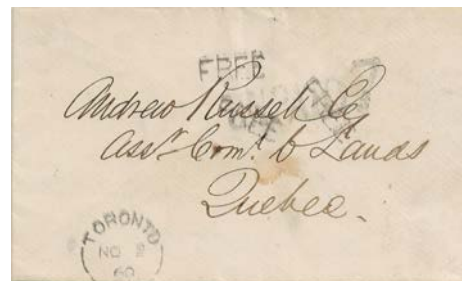 FREE
Andrew Russell Eq
Asst Comr. C Lands
Quebec.
TORONTO
NO 2
60